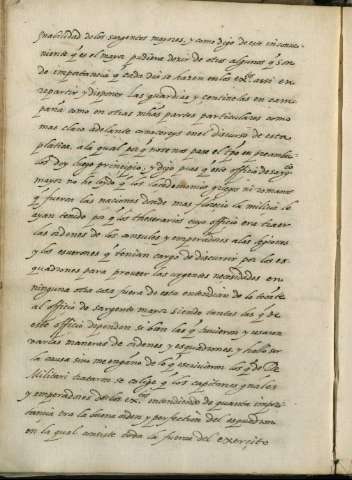 qualidad de los sargentos mayores, y como digo de este inconue-
niente q̃ es el mayor pudiera dezir de otros algunos q̃ son
de importancia q̃ cada dia se hazen en los ex.tos assi en
repartir y disponer las guardias, y centinelas en cam-
paña como en otras muchas partes particulares como
mas claro adelante conoceras en el discurso de esta
platica, a la qual por q̃ no se nos passe el tpo en preambu-
los doy luego principio, y digo pues q̃ este officio de sarg.to
mayor no he leido q̃ los lacedemonios griegos ni romanos
q̃ fueron las naciones donde mas florecio la milicia le
ayan tenido por q̃ los tesserarios cuyo officio era traer
las ordenes de los consules y emperadores a las legiones
y los q̃ tenian cargo de discurrir por los es-
quadrones para proueer las urgentes necesidades en
ninguna otra cosa fuera de esta entendian de lo tocãte
al officio de sargento mayor siendo tantas las q̃ de
este officio dependen si bien las q̃ tuuieron y usaron
varias maneras de ordenes, y esquadrones, y hallo ser
la causa sino me engaño de lo q̃ escriuieron los q̃ de Re
Militari trataron se colige q̃ los capitanes generales
y emperadores de los ex.tos entendiendo de quanta impor-
tancia era la buena orden y perfection del esquadron
en la qual consiste toda la fuerza del exercito